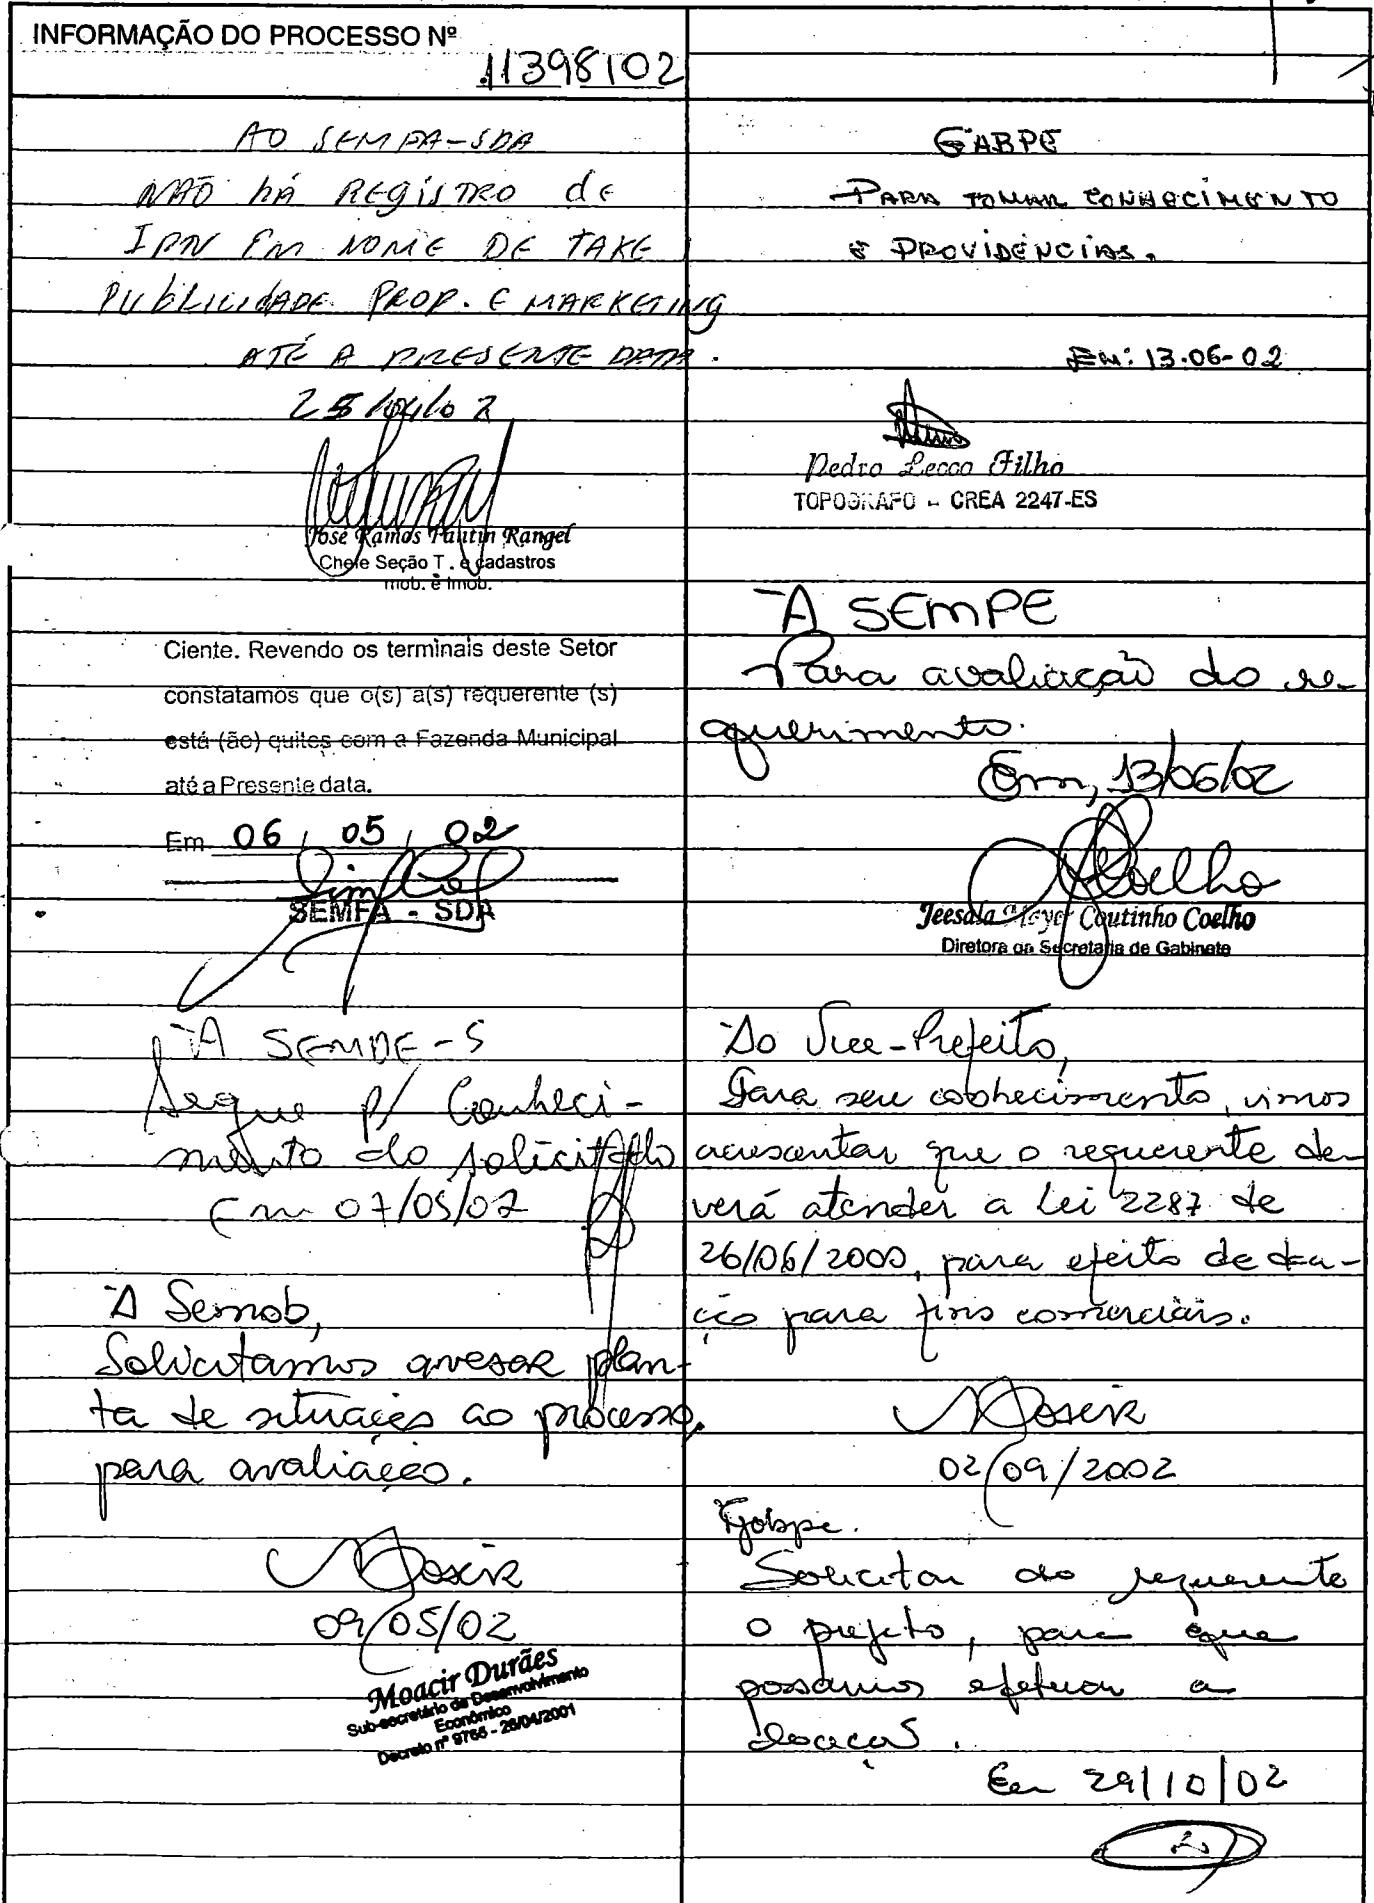 INFORMAÇÃO DO PROCESSO Nº
11398/02
AO SEMFA-SDA
NÃO há REgiSTRO de
EM NOME DE TAKE
PUbLiCidADE PROP. E MARKETING
ATÉ A PRESENTE DATA.
25/04/02
José Ramos Pautin Rangel
Chefe Seção T. e cadastros
mob. e Imob.
Ciente. Revendo os terminais deste Setor
constatamos que o(s) a(s) requerente (s)
está (ão) quites com a Fazenda Municipal
até a Presente data.
Em 06 / 05 / 02
SEMFA - SDA
À SEMDE-S
Segue p/ Conheci-
mento do solicitado
Em 07/05/02
À Semob,
Solicitamos anexar plan-
ta de situação ao processo,
para avaliação.
Moacir
09/05/02
Moacir Durães
Sub-secretário de Desenvolvimento
Econômico
Decreto nº 9765 - 26/04/2001
GABPE
PARA TOMAR CONHECIMENTO
E PROVIDÊNCIAS.
EM: 13.06-02
Pedro Lecco Filho
TOPOGRAFO - CREA 2247-ES
À SEMPE
Para avaliação do re-
querimento.
Em, 13/06/02
Coelho
Jeesala Meyer Coutinho Coelho
Diretora da Secretaria de Gabinete
Ao Vice-Prefeito,
Para seu conhecimento, vimos
acrescentar que o requerente de-
verá atender a Lei 2287 de
26/06/2000, para efeito de doa-
ção para fins comerciais.
Moacir
02/09/2002
Gabpe.
Solicitar ao requerente
o projeto, para que
possamos efetuar a
doação.
Em 29/10/02